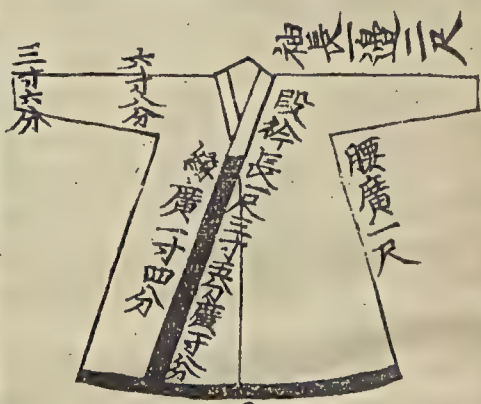 袖長一邊二尺
腰廣一尺
衿長尺三寸五分廣寸
廣一寸四分
六寸八分
三寸六分